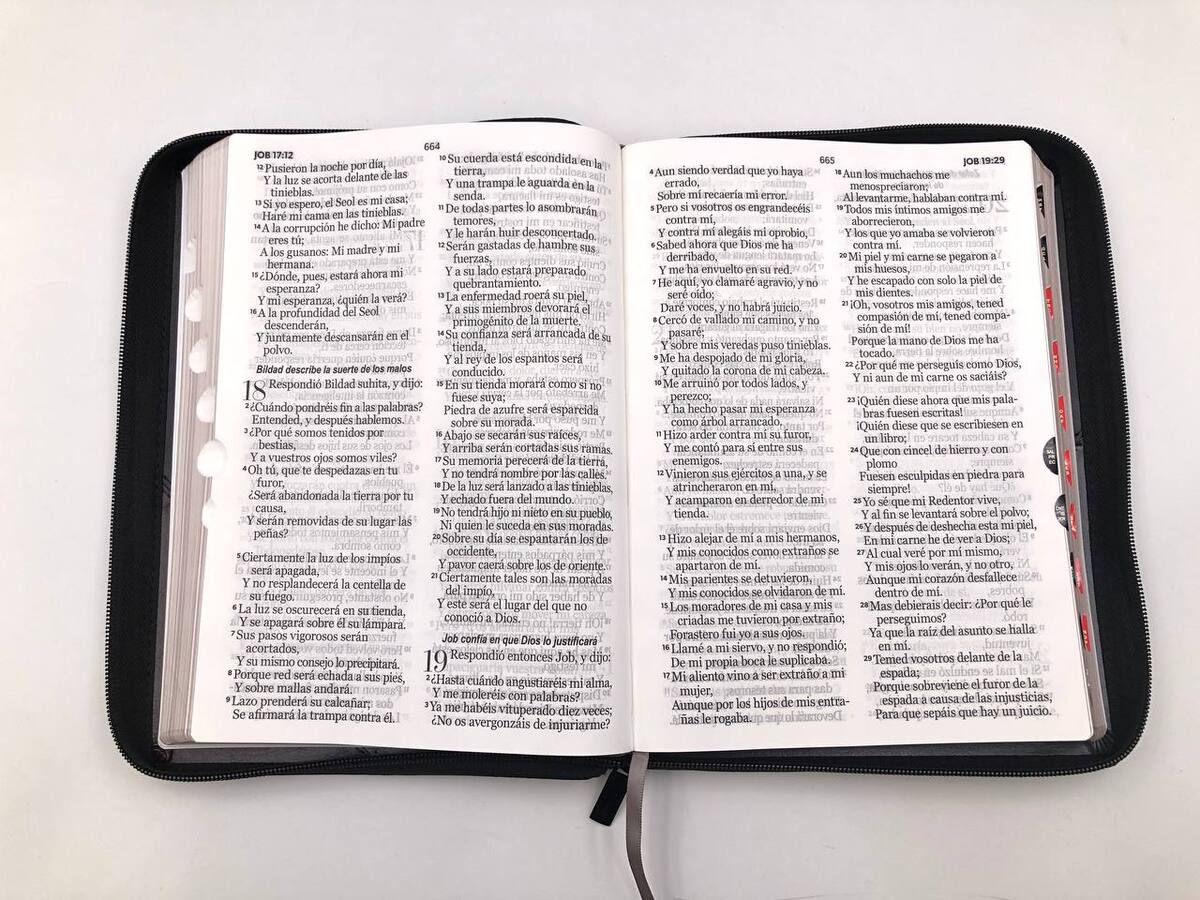 JOB 17:12
664
12 Pusieron la noche por día,
Y la luz se acorta delante de las
tinieblas.
13 Si yo espero, el Seol es mi casa;
Haré mi cama en las tinieblas.
14 A la corrupción he dicho: Mi padre
eres tú;
A los gusanos: Mi madre y mi
hermana.
15 ¿Dónde, pues, estará ahora mi
esperanza?
Y mi esperanza, ¿quién la verá?
16 A la profundidad del Seol
descenderán,
Y juntamente descansarán en el
polvo.
Bildad describe la suerte de los malos
18 Respondió Bildad suhita, y dijo:
2 ¿Cuándo pondréis fin a las palabras?
Entended, y después hablemos.
3 ¿Por qué somos tenidos por
bestias,
Y a vuestros ojos somos viles?
4 Oh tú, que te despedazas en tu
furor,
¿Será abandonada la tierra por tu
causa,
Y serán removidas de su lugar las
peñas?
5 Ciertamente la luz de los impíos
será apagada,
Y no resplandecerá la centella de
su fuego.
6 La luz se oscurecerá en su tienda,
Y se apagará sobre él su lámpara.
7 Sus pasos vigorosos serán
acortados,
Y su mismo consejo lo precipitará.
8 Porque red será echada a sus pies,
Y sobre mallas andará.
9 Lazo prenderá su calcañar;
Se afirmará la trampa contra él.
10 Su cuerda está escondida en la
tierra,
Y una trampa le aguarda en la
senda.
11 De todas partes lo asombrarán
temores,
Y le harán huir desconcertado.
12 Serán gastadas de hambre sus
fuerzas,
Y a su lado estará preparado
quebrantamiento.
13 La enfermedad roerá su piel,
Y a sus miembros devorará el
primogénito de la muerte.
14 Su confianza será arrancada de su
tienda,
Y al rey de los espantos será
conducido.
15 En su tienda morará como si no
fuese suya;
Piedra de azufre será esparcida
sobre su morada.
16 Abajo se secarán sus raíces,
Y arriba serán cortadas sus ramas.
17 Su memoria perecerá de la tierra,
Y no tendrá nombre por las calles.
18 De la luz será lanzado a las tinieblas,
Y echado fuera del mundo.
19 No tendrá hijo ni nieto en su pueblo,
Ni quien le suceda en sus moradas.
20 Sobre su día se espantarán los de
occidente,
Y pavor caerá sobre los de oriente.
21 Ciertamente tales son las moradas
del impío,
Y este será el lugar del que no
conoció a Dios.
Job confía en que Dios lo justificará
19 Respondió entonces Job, y dijo:
2 ¿Hasta cuándo angustiaréis mi alma,
Y me moleréis con palabras?
3 Ya me habéis vituperado diez veces;
¿No os avergonzáis de injuriarme?
665
JOB 19:29
4 Aun siendo verdad que yo haya
errado,
Sobre mí recaería mi error.
5 Pero si vosotros os engrandecéis
contra mí,
Y contra mí alegáis mi oprobio,
6 Sabed ahora que Dios me ha
derribado,
Y me ha envuelto en su red.
7 He aquí, yo clamaré agravio, y no
seré oído;
Daré voces, y no habrá juicio.
8 Cercó de vallado mi camino, y no
pasaré;
Y sobre mis veredas puso tinieblas.
9 Me ha despojado de mi gloria,
Y quitado la corona de mi cabeza.
10 Me arruinó por todos lados, y
perezco;
Y ha hecho pasar mi esperanza
como árbol arrancado.
11 Hizo arder contra mí su furor,
Y me contó para sí entre sus
enemigos.
12 Vinieron sus ejércitos a una, y se
atrincheraron en mí,
Y acamparon en derredor de mi
tienda.
13 Hizo alejar de mí a mis hermanos,
Y mis conocidos como extraños se
apartaron de mí.
14 Mis parientes se detuvieron,
Y mis conocidos se olvidaron de mí.
15 Los moradores de mi casa y mis
criadas me tuvieron por extraño;
Forastero fui yo a sus ojos.
16 Llamé a mi siervo, y no respondió;
De mi propia boca le suplicaba.
17 Mi aliento vino a ser extraño a mi
mujer,
Aunque por los hijos de mis entra-
ñas le rogaba.
18 Aun los muchachos me
menospreciaron;
Al levantarme, hablaban contra mí.
19 Todos mis íntimos amigos me
aborrecieron,
Y los que yo amaba se volvieron
contra mí.
20 Mi piel y mi carne se pegaron a
mis huesos,
Y he escapado con solo la piel de
mis dientes.
21 ¡Oh, vosotros mis amigos, tened
compasión de mí, tened compa-
sión de mí!
Porque la mano de Dios me ha
tocado.
22 ¿Por qué me perseguís como Dios,
Y ni aun de mi carne os saciáis?
23 ¡Quién diese ahora que mis pala-
bras fuesen escritas!
¡Quién diese que se escribiesen en
un libro;
24 Que con cincel de hierro y con
plomo
Fuesen esculpidas en piedra para
siempre!
25 Yo sé que mi Redentor vive,
Y al fin se levantará sobre el polvo;
26 Y después de deshecha esta mi piel,
En mi carne he de ver a Dios;
27 Al cual veré por mí mismo,
Y mis ojos lo verán, y no otro,
Aunque mi corazón desfallece
dentro de mí.
28 Mas debierais decir: ¿Por qué le
perseguimos?
Ya que la raíz del asunto se halla
en mí.
29 Temed vosotros delante de la
espada;
Porque sobreviene el furor de la
espada a causa de las injusticias,
Para que sepáis que hay un juicio.